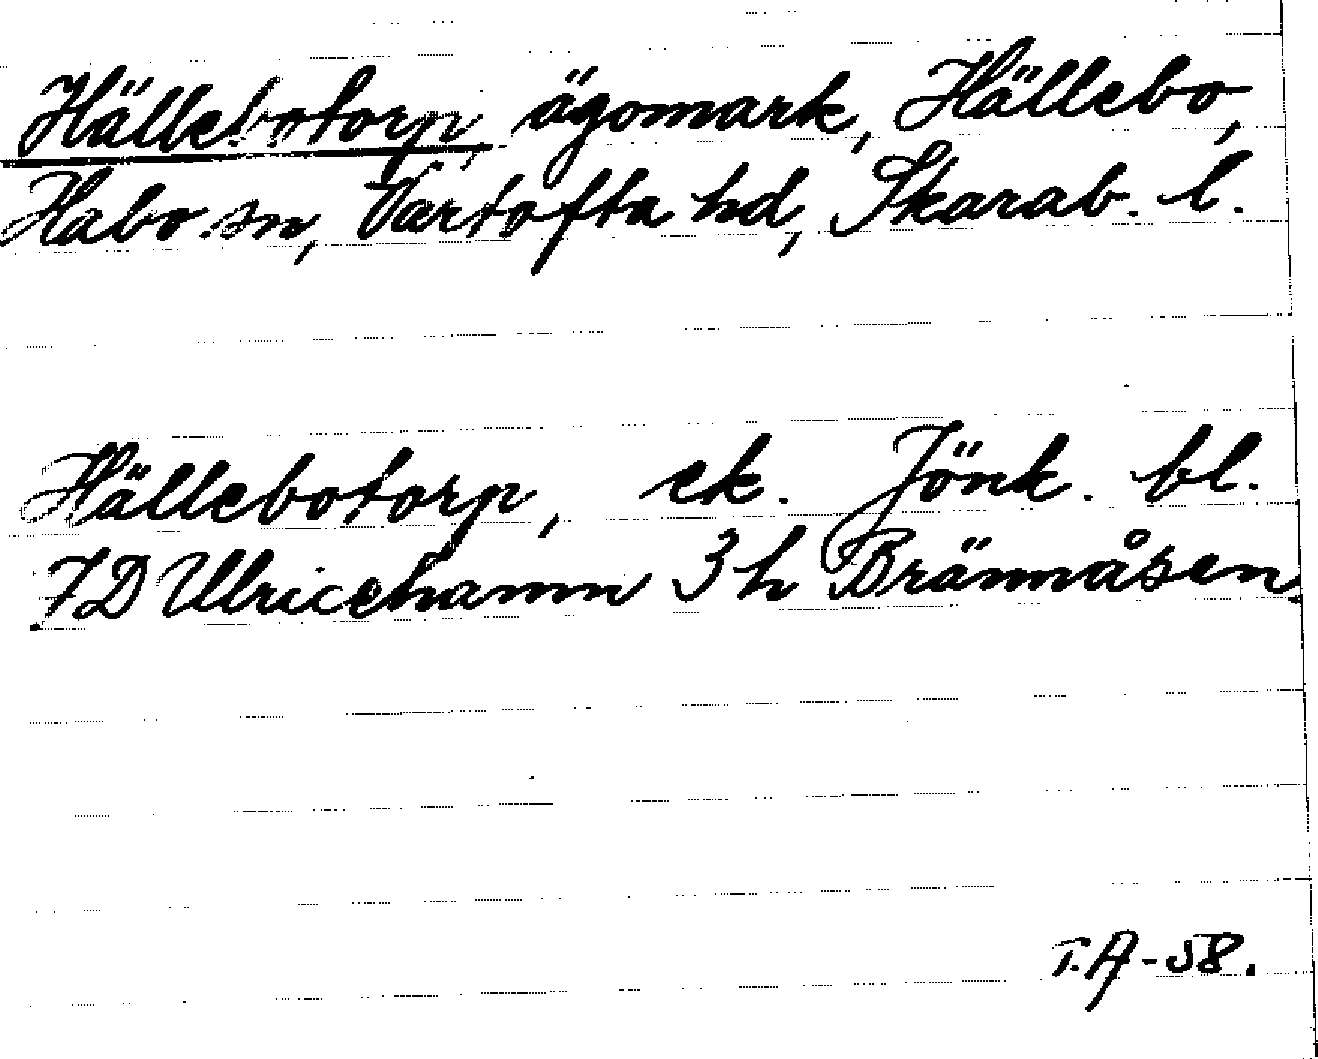 Hällebotorp, ägomark, Hällebo,
Habo sn, Vartofta hd, Skarab. l.
Hällebotorp, ek. Jönk. bl.
7D Ulricehamn 3h Brännåsen
T.A-58.